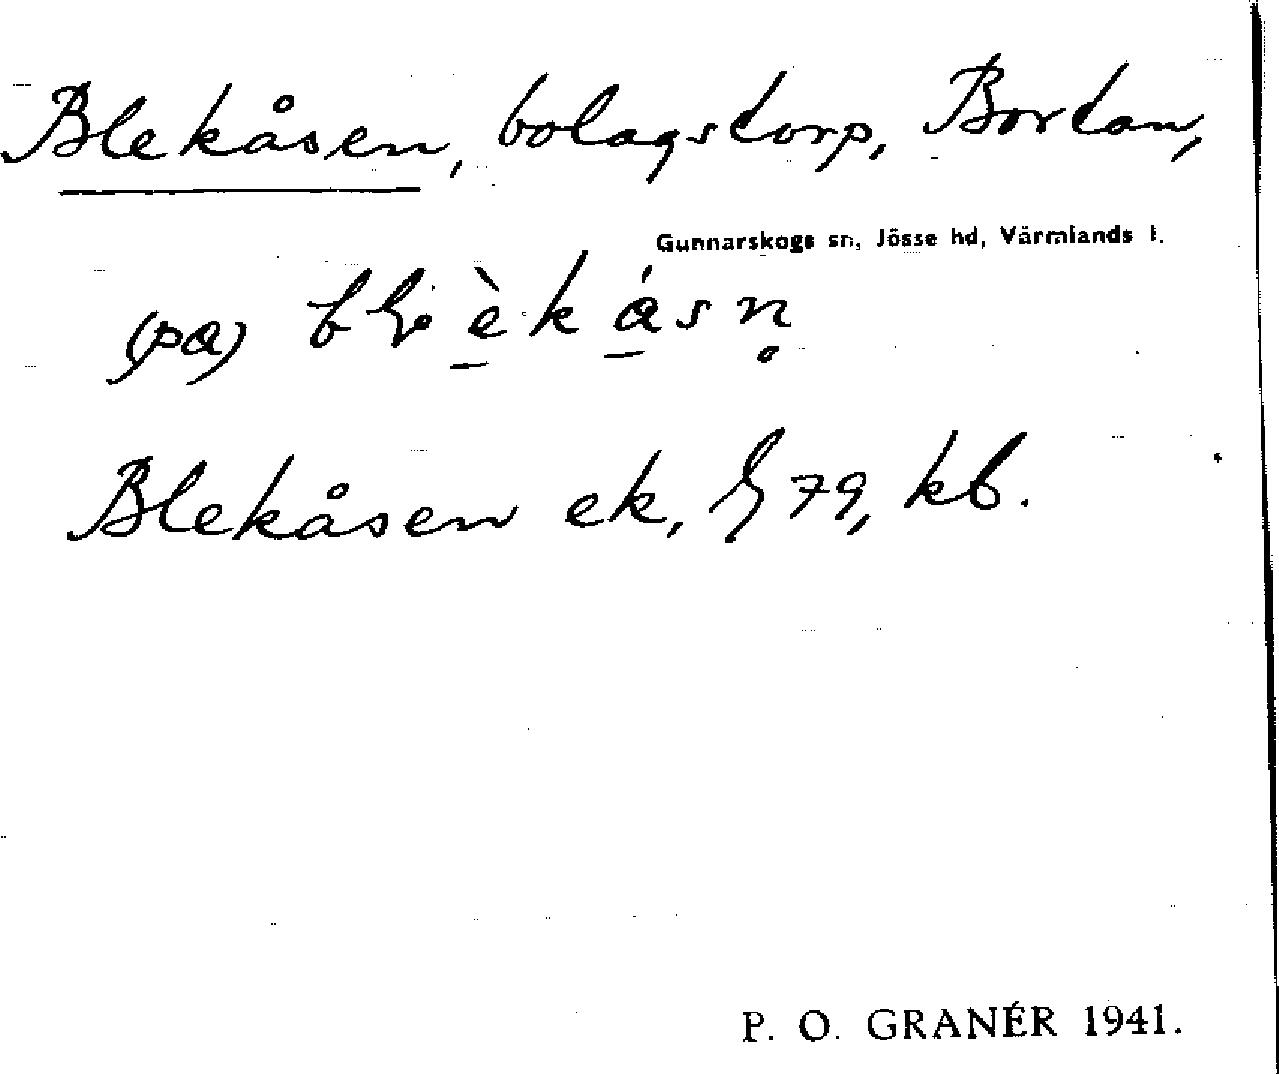 Blekåsen, bolagstorp, Bortan,
Gunnarskogs sn, Jösse hd, Värmlands l.
(pa)
Blekåsen ek, G 79, kb.
P. O. GRANÉR 1941.